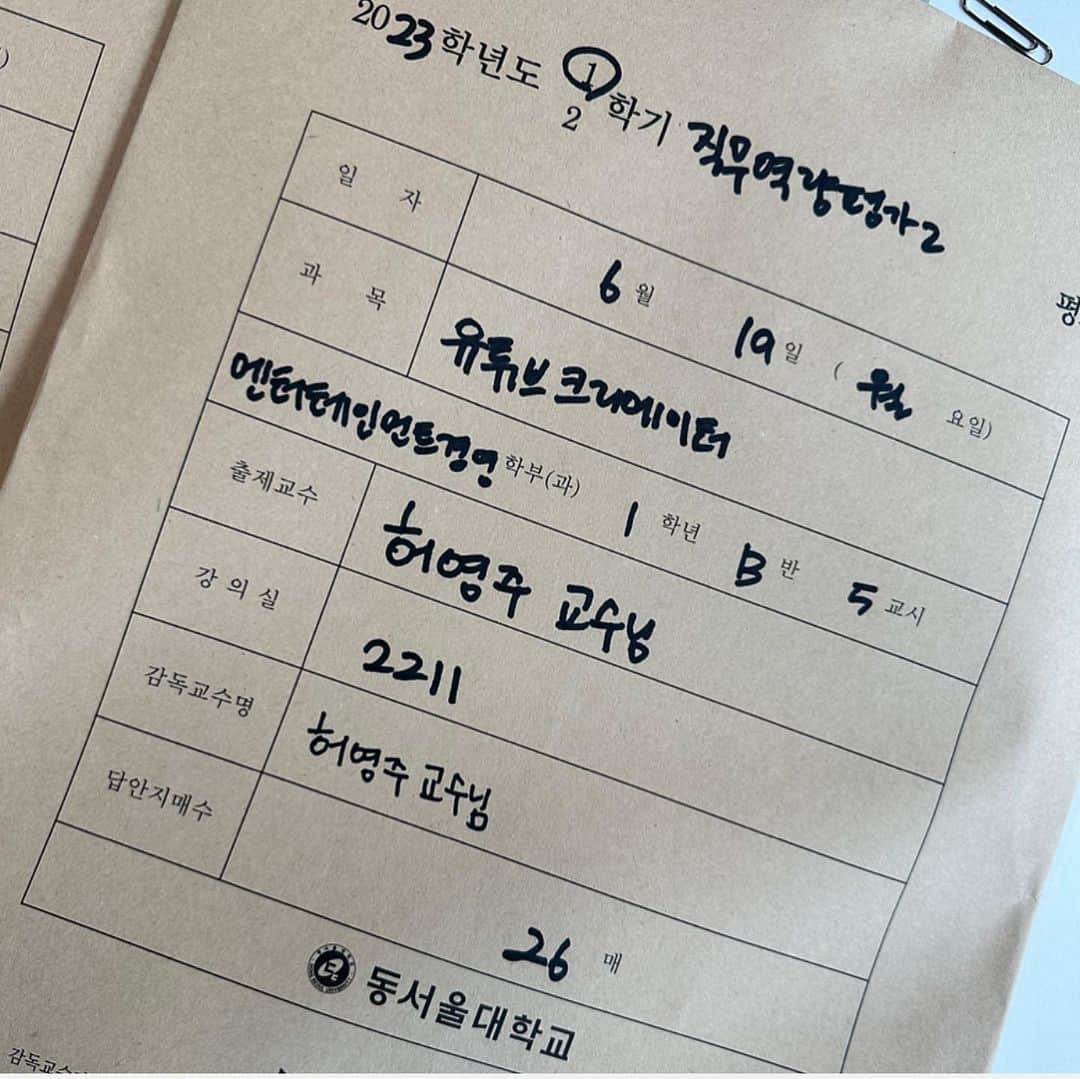 2023학년도 1 학기 직무역량평가2
2
일 자 6월 19일 ( 월 요일)
과 목 유튜브 크리에이터
엔터테인먼트경영 학부(과) 1 학년 B 반 5 교시
출제교수 허영주 교수님
강 의 실 2211
감독교수명 허영주 교수님
답안지매수 26 매
동서울대학교
평
감독교수